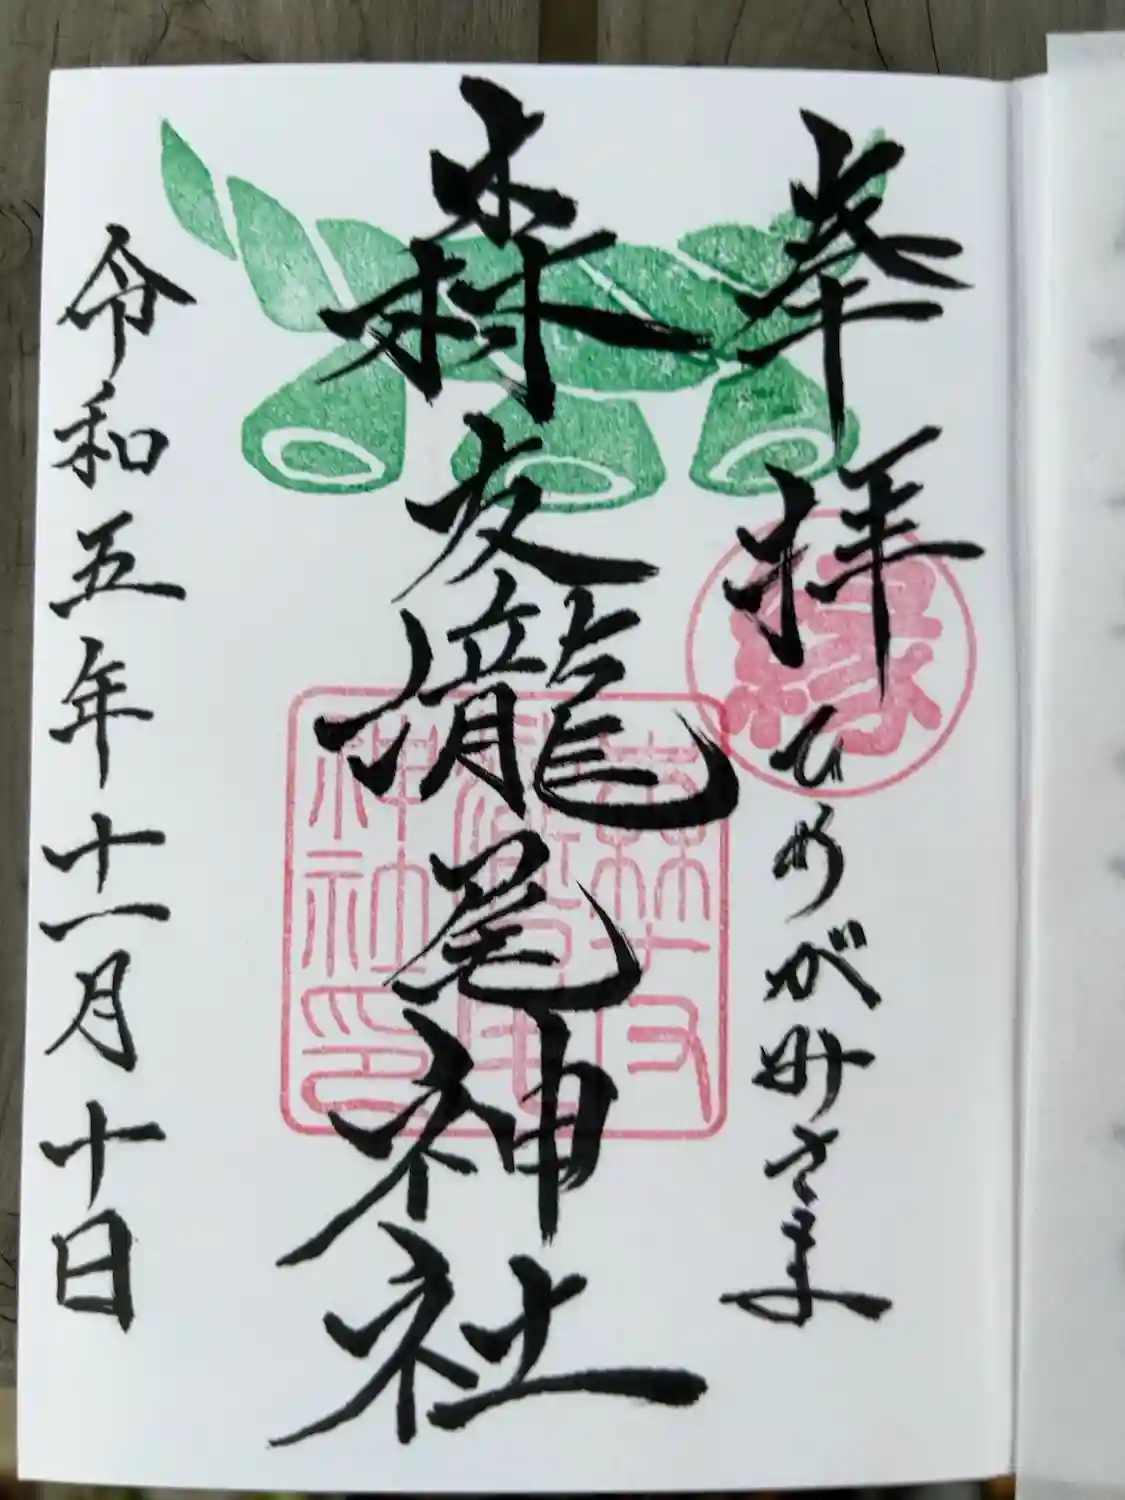 奉拝
ひめが井さま
縁
森友龍尾神社
森友
龍尾
神社印
令和五年十一月十日